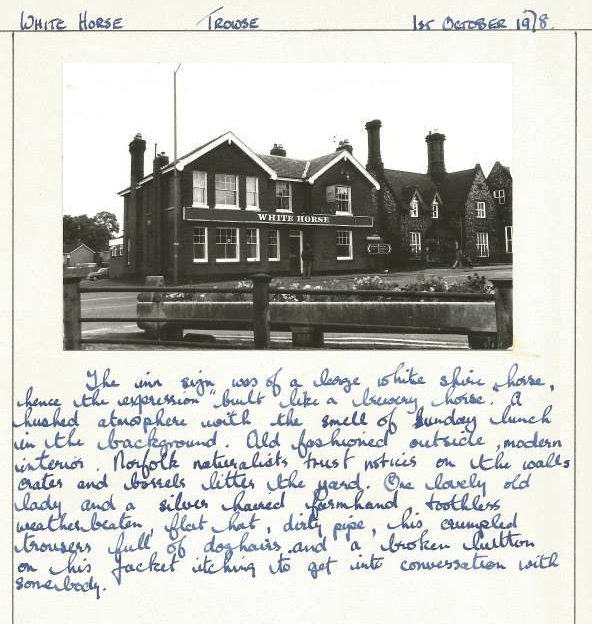 WHITE HORSE TROWSE 1ST OCTOBER 1978.
WHITE HORSE
The inn sign was of a large white shire horse,
hence the expression "built like a brewery horse". A
hushed atmosphere with the smell of Sunday lunch
in the background. Old fashioned outside, modern
interior. Norfolk naturalists trust notices on the walls
crates and barrels litter the yard. One lovely old
lady and a silver haired farmhand, toothless
weatherbeaten, flat hat, dirty pipe, his crumpled
trousers full of doghairs and a broken button
on his jacket itching to get into conversation with
somebody.